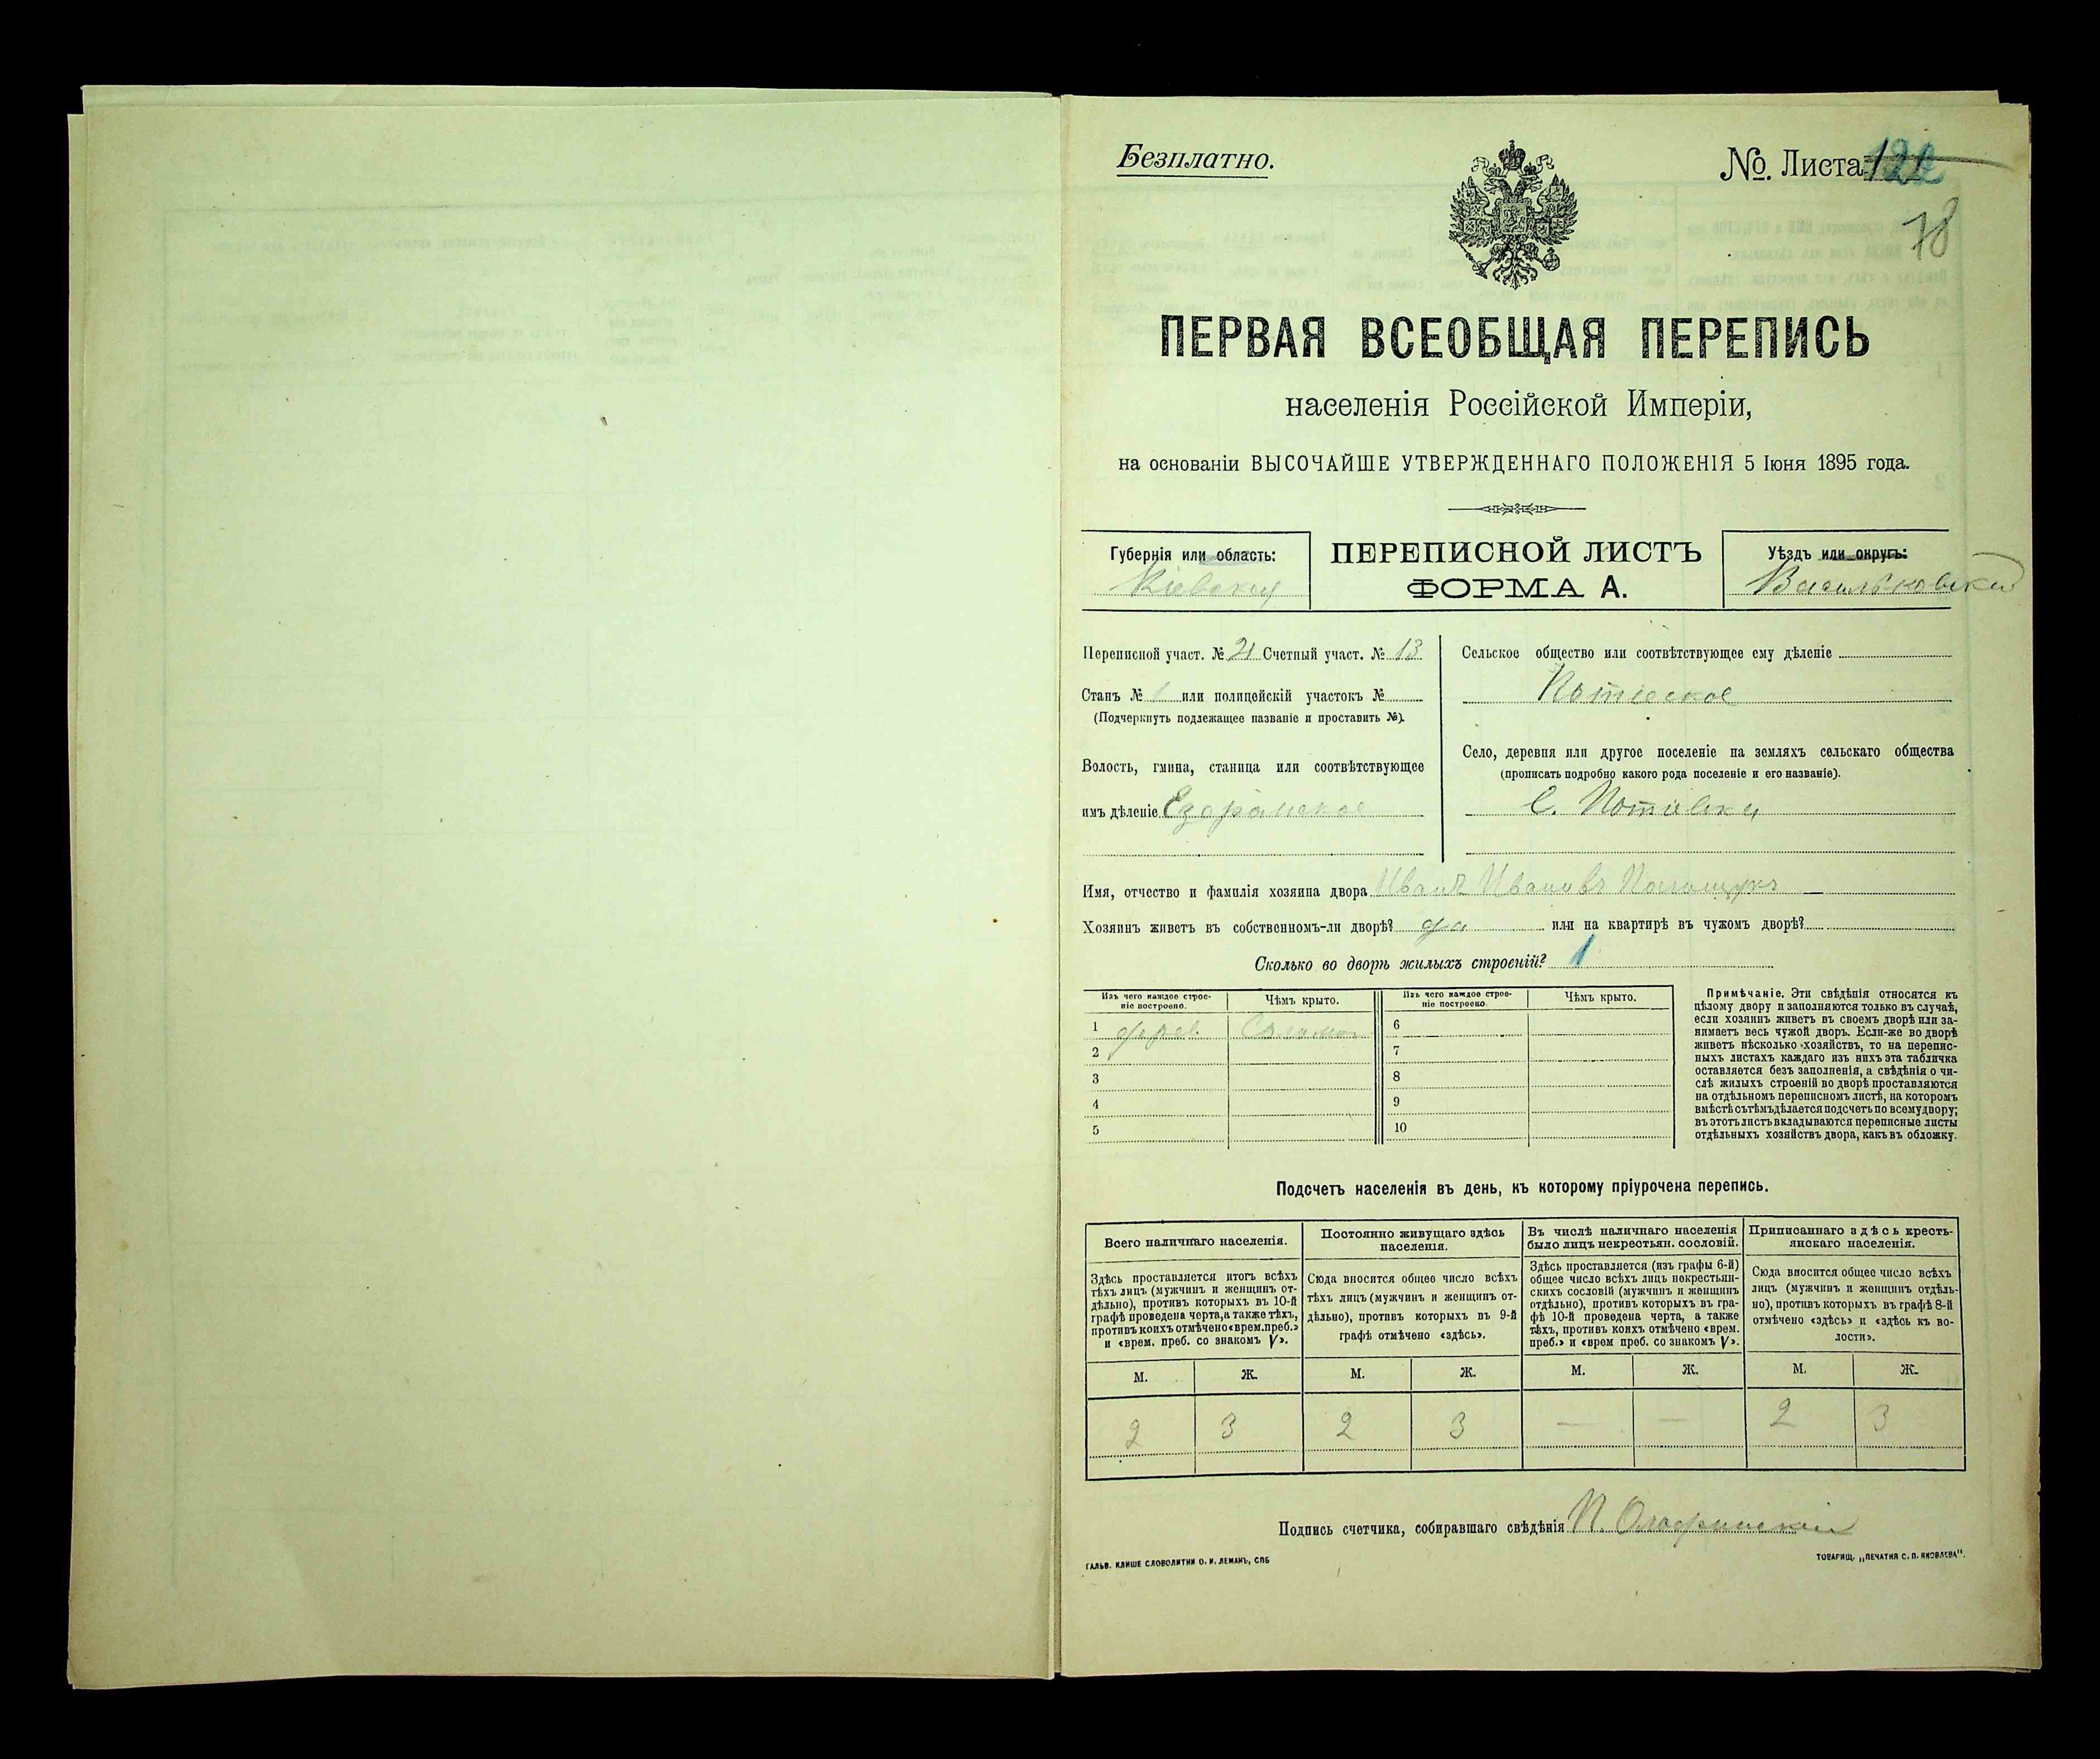 Безплатно.
№. Листа 122
78
ПЕРВАЯ ВСЕОБЩАЯ ПЕРЕПИСЬ
населенія Россійской Имперіи,
на основаніи ВЫСОЧАЙШЕ УТВЕРЖДЕННАГО ПОЛОЖЕНІЯ 5 Іюня 1895 года.
Губернія или область:
Кіевская
ПЕРЕПИСНОЙ ЛИСТЪ
ФОРМА А.
Уѣздъ или округъ:
Васильковскій
Переписной участ. № 21 Счетный участ. № 13
Станъ № 1 или полицейскій участокъ №
(Подчеркнуть подлежащее названіе и проставить №).
Волость, гмина, станица или соотвѣтствующее
имъ дѣленіе
Сельское общество или соотвѣтствующее ему дѣленіе
Потіевское
Село, деревня или другое поселеніе на земляхъ сельскаго общества
(прописать подробно какого рода поселеніе и его названіе).
С. Потіевка
Имя, отчество и фамилія хозяина двора Иванъ Ивановъ
Хозяинъ живетъ въ собственномъ-ли дворѣ? да или на квартирѣ въ чужомъ дворѣ?
Сколько во дворѣ жилыхъ строеній? 1
Изъ чего каждое строе-
ніе построено.
Чѣмъ крыто.
Изъ чего каждое строе-
ніе построено.
Чѣмъ крыто.
1 дерев. Соломой 6
2 7
3 8
4 9
5 10
Примѣчаніе. Эти свѣдѣнія относятся къ
цѣлому двору и заполняются только въ случаѣ,
если хозяинъ живетъ въ своемъ дворѣ или за-
нимаетъ весь чужой дворъ. Если-же во дворѣ
живетъ нѣсколько хозяйствъ, то на перепис-
ныхъ листахъ каждаго изъ нихъ эта табличка
оставляется безъ заполненія, а свѣдѣнія о чи-
слѣ жилыхъ строеній во дворѣ проставляются
на отдѣльномъ переписномъ листѣ, на которомъ
вмѣстѣ съ тѣмъ дѣлается подсчетъ по всему двору;
въ этотъ листъ вкладываются переписные листы
отдѣльныхъ хозяйствъ двора, какъ въ обложку.
Подсчетъ населенія въ день, къ которому пріурочена перепись.
Всего наличнаго населенія.
Здѣсь проставляется итогъ всѣхъ
тѣхъ лицъ (мужчинъ и женщинъ от-
дѣльно), противъ которыхъ въ 10-й
графѣ проведена черта, а также тѣхъ,
противъ коихъ отмѣчено «врем. преб.»
и «врем. преб. со знакомъ V».
Постоянно живущаго здѣсь
населенія.
Сюда вносится общее число всѣхъ
тѣхъ лицъ (мужчинъ и женщинъ от-
дѣльно), противъ которыхъ въ 9-й
графѣ отмѣчено «здѣсь».
Въ числѣ наличнаго населенія
было лицъ некрестьян. сословій.
Здѣсь проставляется (изъ графы 6-й)
общее число всѣхъ лицъ некрестьян-
скихъ сословій (мужчинъ и женщинъ
отдѣльно), противъ которыхъ въ гра-
фѣ 10-й проведена черта, а также
тѣхъ, противъ коихъ отмѣчено «врем.
преб.» и «врем преб. со знакомъ V».
Приписаннаго здѣсь кресть-
янскаго населенія.
Сюда вносится общее число всѣхъ
лицъ (мужчинъ и женщинъ отдѣль-
но), противъ которыхъ въ графѣ 8-й
отмѣчено «здѣсь» и «здѣсь къ во-
лости».
М. Ж. М. Ж. М. Ж. М. Ж.
2 3 2 3 — — 2 3
Подпись счетчика, собиравшаго свѣдѣнія П.
ГАЛЬВ. КЛИШЕ СЛОВОЛИТНИ О. И. ЛЕМАНЪ, СПБ
ТОВАРИЩ. „ПЕЧАТНЯ С. П. ЯКОВЛЕВА".